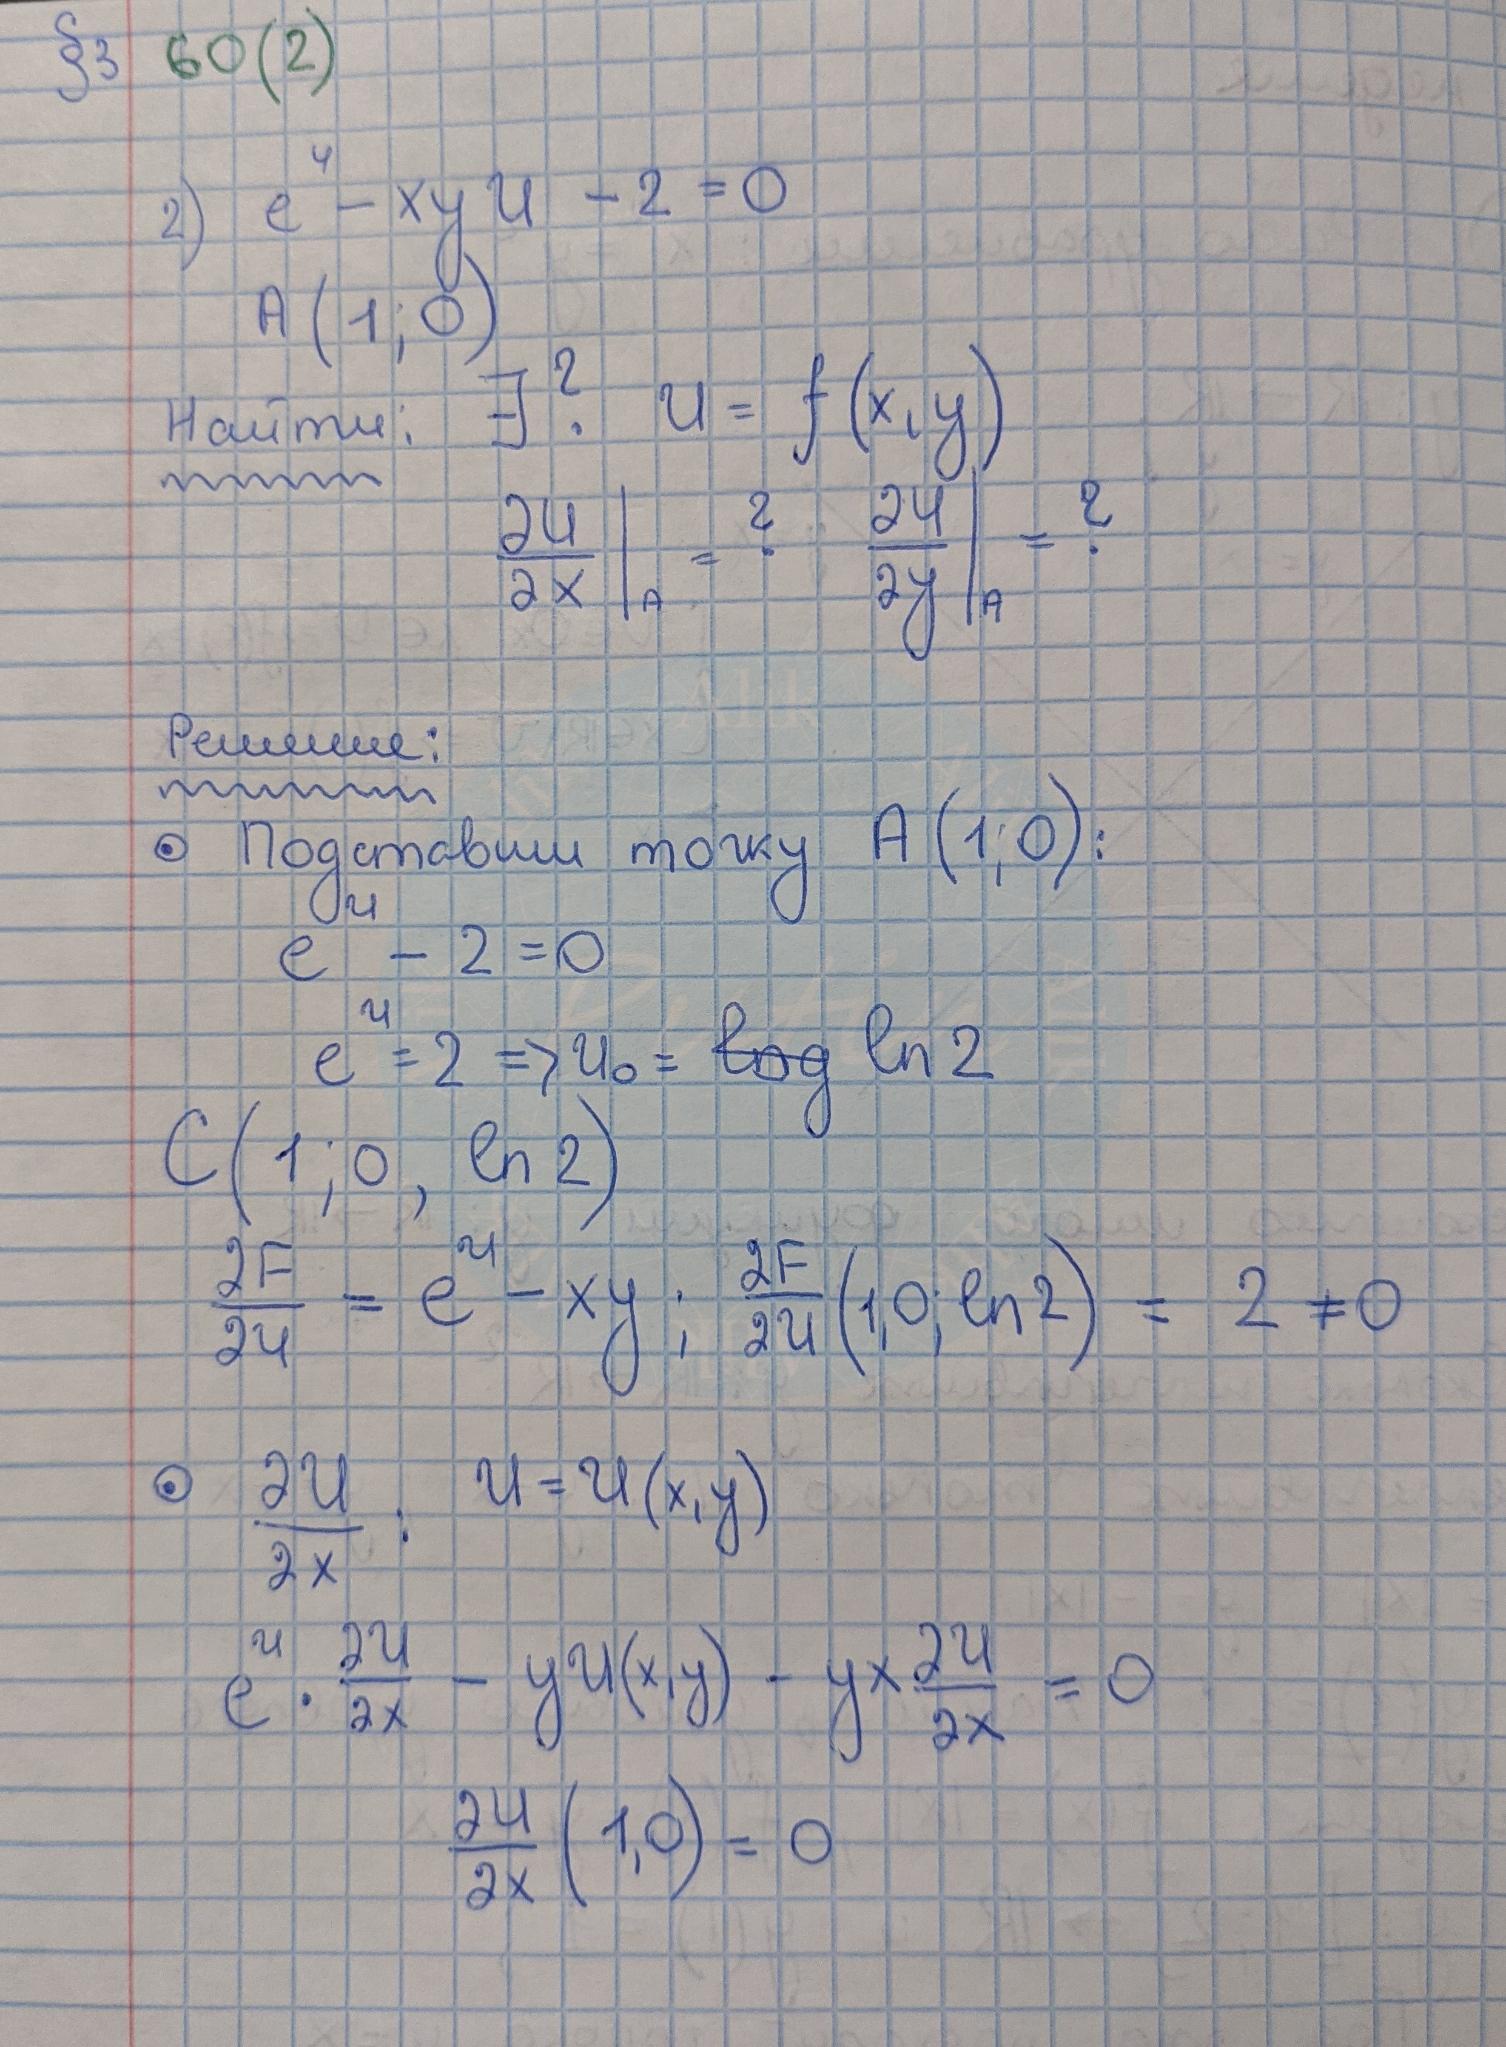 §3 60(2)
2) e^u − xyu − 2 = 0
A(1; 0)
Найти: ∃? u = f(x, y)
∂u/∂x |_A = ? ∂u/∂y |_A = ?
Решение:
⊙ Подставим точку A(1; 0):
e^u − 2 = 0
e^u = 2 => u₀ = ~~log~~ ln 2
C(1; 0, ln 2)
∂F/∂u = e^u − xy; ∂F/∂u (1, 0; ln 2) = 2 ≠ 0
⊙ ∂u/∂x : u = u(x, y)
e^u · ∂u/∂x − yu(x, y) − yx ∂u/∂x = 0
∂u/∂x (1, 0) = 0